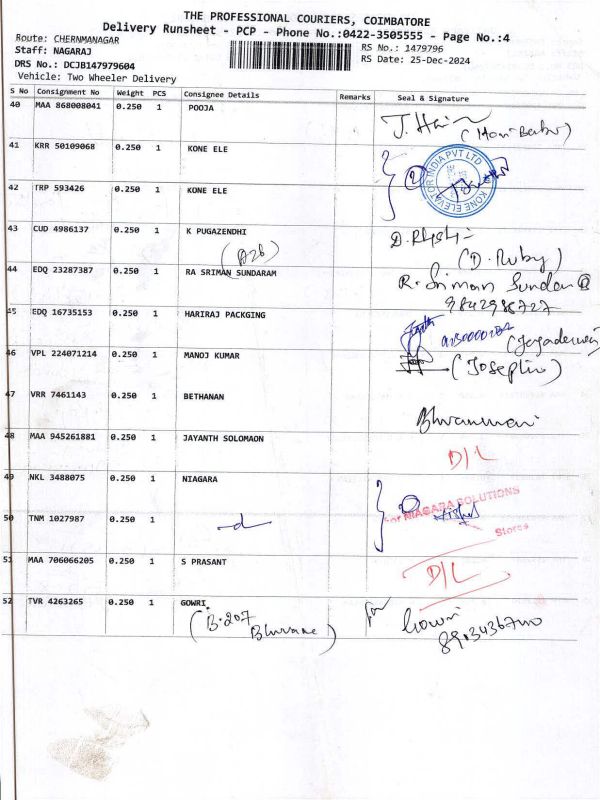 THE PROFESSIONAL COURIERS, COIMBATORE
Delivery Runsheet - PCP - Phone No.:0422-3505555 - Page No.:4
Route: CHERNMANAGAR
RS No.: 1479796
Staff: NAGARAJ
RS Date: 25-Dec-2024
DRS No.: DCJB147979604
Vehicle: Two Wheeler Delivery
S No Consignment No Weight PCS Consignee Details Remarks Seal & Signature
40 MAA 868008041 0.250 1 POOJA
J. Hari
(Hari Babu)
41 KRR 50109068 0.250 1 KONE ELE
2
KONE ELEVATOR INDIA PVT LTD
42 TRP 593426 0.250 1 KONE ELE
43 CUD 4986137 0.250 1 K PUGAZENDHI
(A26)
(D. Ruby)
44 EDQ 23287387 0.250 1 RA SRIMAN SUNDARAM
R. Sriman Sundar
9842988727
45 EDQ 16735153 0.250 1 HARIRAJ PACKGING
46 VPL 224071214 0.250 1 MANOJ KUMAR
47 VRR 7461143 0.250 1 BETHANAN
48 MAA 945261881 0.250 1 JAYANTH SOLOMAON
D/L
49 NKL 3488075 0.250 1 NIAGARA
For NIAGARA SOLUTIONS
50 TNM 1027987 0.250 1
-d-
Stores
51 MAA 706066205 0.250 1 S PRASANT
D/L
52 TVR 4263265 0.250 1 GOWRI.
for Gowri
(B.207